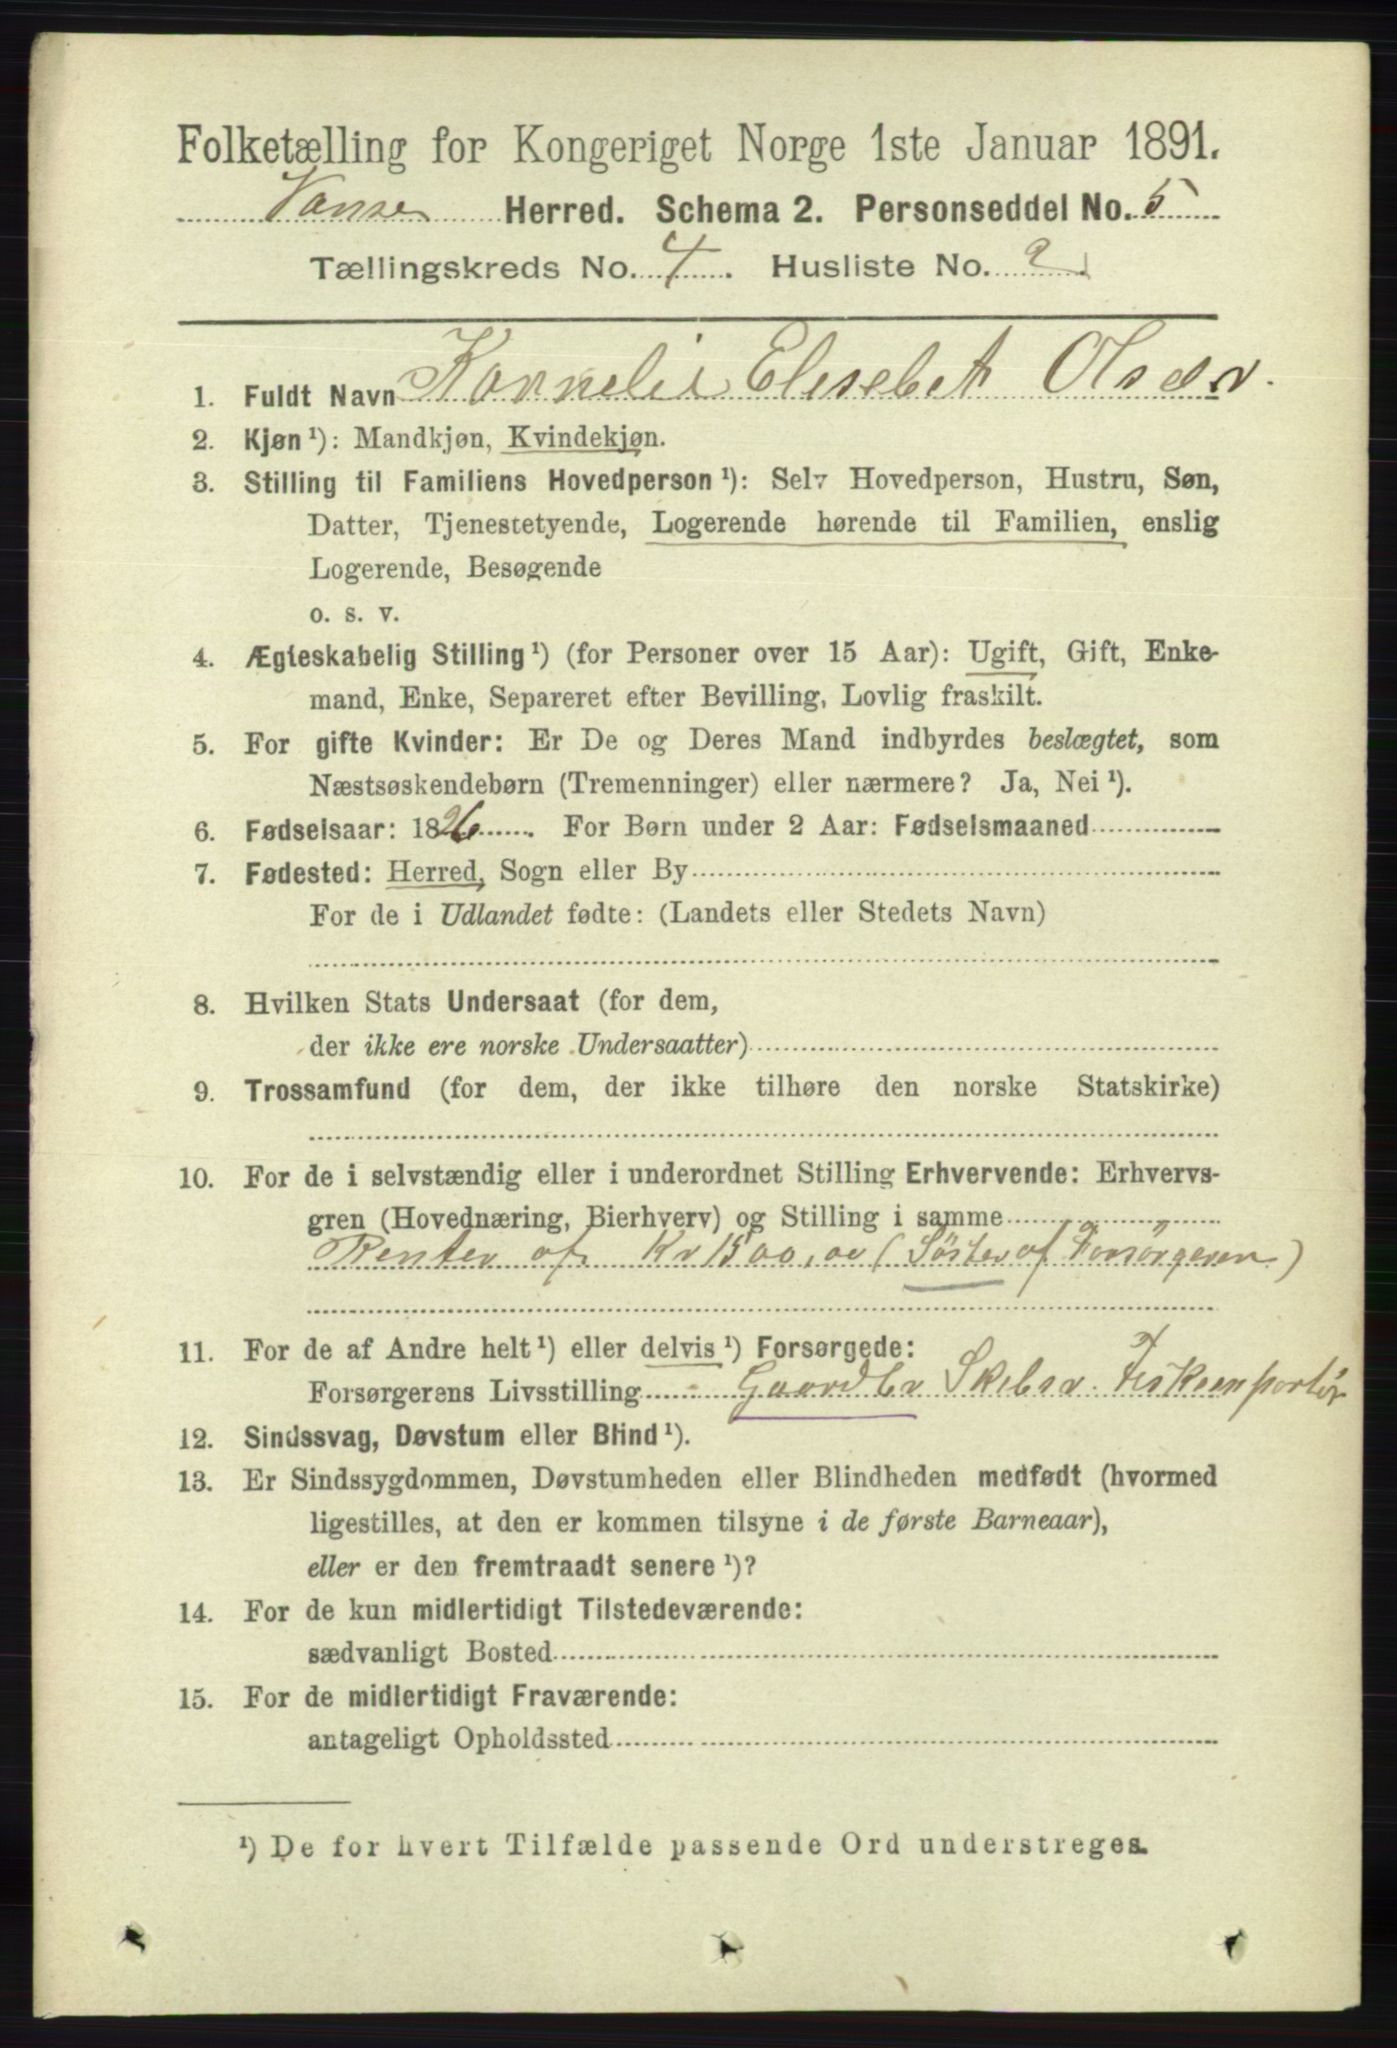 Folketælling for Kongeriget Norge 1ste Januar 1891.
Vanse Herred. Schema 2. Personseddel No. 5
Tællingskreds No. 4. Husliste No. 2
1. Fuldt Navn Kornelia Elisebet Olsen.
2. Kjøn ¹): Mandkjøn, Kvindekjøn.
3. Stilling til Familiens Hovedperson ¹): Selv Hovedperson, Hustru, Søn,
Datter, Tjenestetyende, Logerende hørende til Familien, enslig
Logerende, Besøgende
o. s. v.
4. Ægteskabelig Stilling ¹) (for Personer over 15 Aar): Ugift, Gift, Enke-
mand, Enke, Separeret efter Bevilling, Lovlig fraskilt.
5. For gifte Kvinder: Er De og Deres Mand indbyrdes beslægtet, som
Næstsøskendebørn (Tremenninger) eller nærmere? Ja, Nei ¹).
6. Fødselsaar: 1826. For Børn under 2 Aar: Fødselsmaaned
7. Fødested: Herred, Sogn eller By
For de i Udlandet fødte: (Landets eller Stedets Navn)
8. Hvilken Stats Undersaat (for dem,
der ikke ere norske Undersaatter)
9. Trossamfund (for dem, der ikke tilhøre den norske Statskirke)
10. For de i selvstændig eller i underordnet Stilling Erhvervende: Erhvervs-
gren (Hovednæring, Bierhverv) og Stilling i samme
Renter af Kr 1500,00 (Søster af Forsørgeren)
11. For de af Andre helt ¹) eller delvis ¹) Forsørgede:
Forsørgerens Livsstilling Gaardbr Skibsr. Fiskeexportør
12. Sindssvag, Døvstum eller Blind ¹).
13. Er Sindssygdommen, Døvstumheden eller Blindheden medfødt (hvormed
ligestilles, at den er kommen tilsyne i de første Barneaar),
eller er den fremtraadt senere ¹)?
14. For de kun midlertidigt Tilstedeværende:
sædvanligt Bosted
15. For de midlertidigt Fraværende:
antageligt Opholdssted
¹) De for hvert Tilfælde passende Ord understreges.